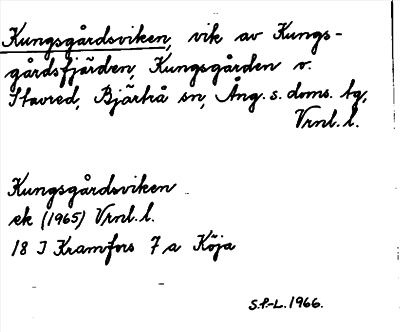 Kungsgårdsviken, vik av Kungs-
gårdsfjärden, Kungsgården v.
Stavred, Bjärtrå sn, Ång. s. doms. tg,
Vrnl. l.
Kungsgårdsviken
ek (1965) Vrnl. l.
18 I Kramfors 7 a Köja
S.P.-L. 1966.